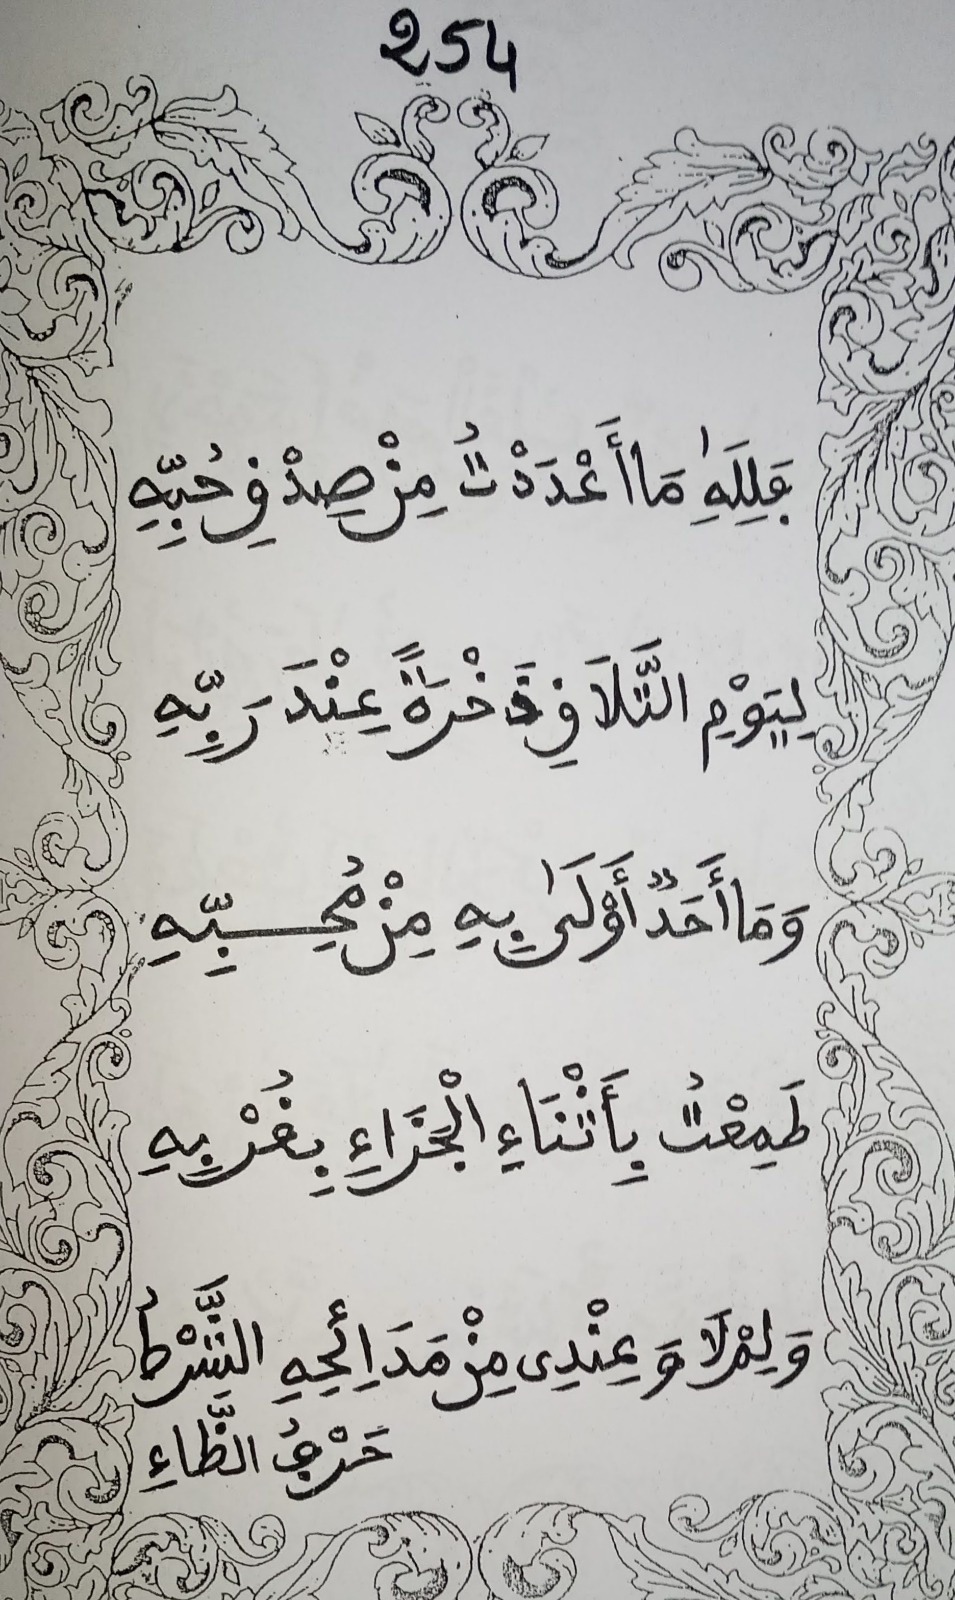 254
فَلِلَهِ مَا أَعْدَدْتُ مِنْ صِدْقِ حُبِّهِ
لِيَوْمِ التَّلَاقِ ذَخْرَةً عِنْدَ رَبِّهِ
وَمَا أَحَدٌ أَوْلَىٰ بِهِ مِنْ مُحِبِّهِ
طَمِعْتُ بِأَثْنَاءِ الْجَزَاءِ بِقُرْبِهِ
وَلِمْ لَا وَعِنْدِي مِنْ مَدَائِحِهِ الشَّرْطُ
حَرْفُ الظَّاءِ